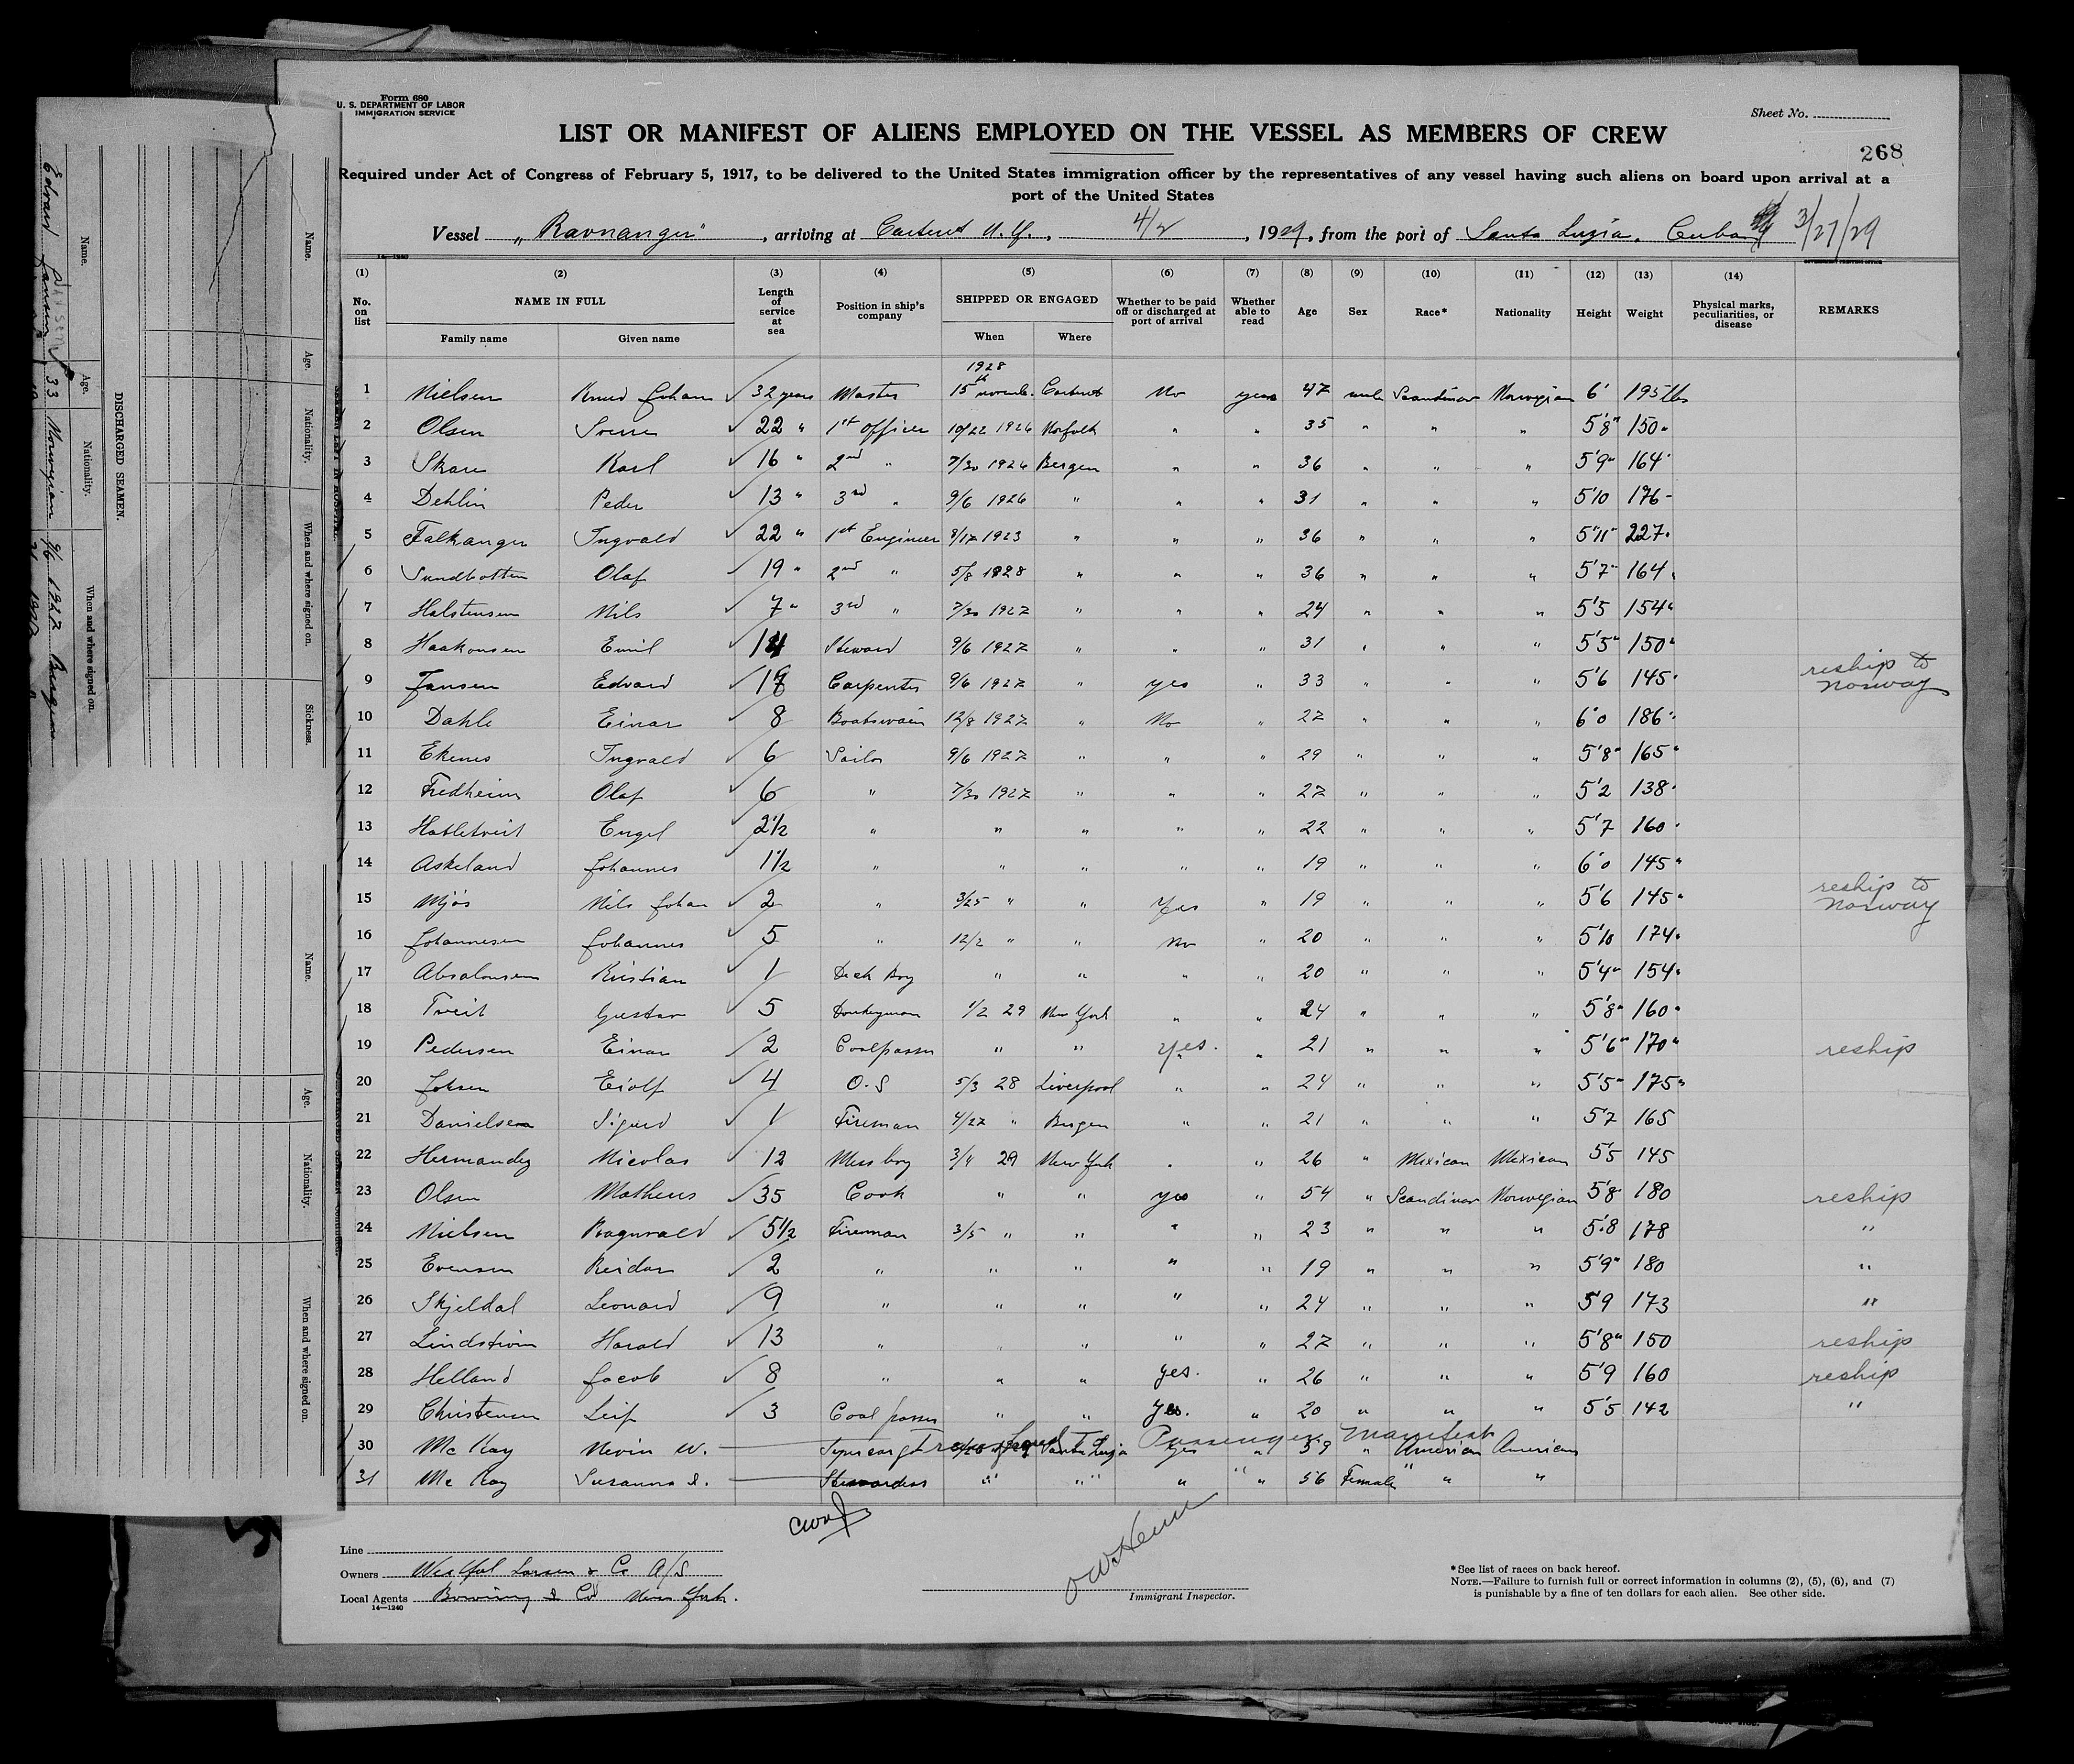 Form 680
U. S. DEPARTMENT OF LABOR
IMMIGRATION SERVICE
Sheet No.
LIST OR MANIFEST OF ALIENS EMPLOYED ON THE VESSEL AS MEMBERS OF CREW
268
Required under Act of Congress of February 5, 1917, to be delivered to the United States immigration officer by the representatives of any vessel having such aliens on board upon arrival at a
port of the United States
Vessel "Ravnanger", arriving at Carteret N.Y., 4/2, 1929, from the port of Santa Luzia, Cuba 3/27/29
14—1240
(1) (2) (3) (4) (5) (6) (7) (8) (9) (10) (11) (12) (13) (14)
No. on list NAME IN FULL Length of service at sea Position in ship's company SHIPPED OR ENGAGED Whether to be paid off or discharged at port of arrival Whether able to read Age Sex Race* Nationality Height Weight Physical marks, peculiarities, or disease REMARKS
Family name Given name When Where
1928
1 Nielsen Knud Johan 32 years Master 15th novemb. Carteret No yes 47 male Scandinav Norwegian 6' 195 lbs
2 Olsen Sverre 22 " 1st Officer 10/22 1926 Norfolk " " 35 " " " 5'8" 150 "
3 Skare Karl 16 " 2nd " 7/30 1926 Bergen " " 36 " " " 5'9" 164 "
4 Dehlin Peder 13 " 3rd " 9/6 1926 " " " 31 " " " 5'10 176 "
5 Falkanger Ingvald 22 " 1st Engineer 8/17 1923 " " " 36 " " " 5'11" 227 "
6 Sundbotten Olaf 19 " 2nd " 5/8 1928 " " " 36 " " " 5'7" 164 "
7 Halstensen Nils 7 " 3rd " 7/30 1927 " " " 24 " " " 5'5 154 "
8 Haakonsen Emil 14 Steward 9/6 1927 " " " 31 " " " 5'5" 150 "
9 Jansen Edvard 17 Carpenter 9/6 1927 " yes " 33 " " " 5'6 145 " reship to Norway
10 Dahle Einar 8 Boatswain 12/8 1927 " No " 27 " " " 6'0 186 "
11 Ekenes Ingvald 6 Sailor 9/6 1927 " " " 29 " " " 5'8" 165 "
12 Fredheim Olaf 6 " 7/30 1927 " " " 27 " " " 5'2 138 "
13 Hatletveit Engel 2½ " " " " " 22 " " " 5'7 160 "
14 Askeland Johannes 1½ " " " " " 19 " " " 6'0 145 "
15 Mjös Nils Johan 2 " 3/25 " " Yes " 19 " " " 5'6 145 " reship to Norway
16 Johannesen Johannes 5 " 12/2 " " No " 20 " " " 5'10 174 "
17 Absalonsen Kristian 1 Deck Boy " " " " 20 " " " 5'4" 154 "
18 Tveit Gustav 5 Donkeyman 1/2 29 New York " " 24 " " " 5'8" 160 "
19 Pedersen Einar 2 Coalpasser " " yes. " 21 " " " 5'6" 170 " reship
20 Johsen Eiolf 4 O.S 5/3 28 Liverpool " " 24 " " " 5'5" 175 "
21 Danielsen Sigurd 1 Fireman 4/27 " Bergen " " 21 " " " 5'7 165
22 Hermandez Nicolas 12 Mess boy 3/4 29 New York " " 26 " Mexican Mexican 5'5 145
23 Olsen Matheus 35 Cook " " yes " 54 " Scandinav Norwegian 5'8" 180 reship
24 Nielsen Ragnvald 5½ Fireman 3/5 " " " " 23 " " " 5'8 178 "
25 Evensen Reidar 2 " " " " " 19 " " " 5'9" 180 "
26 Skjeldal Leonard 9 " " " " " 24 " " " 5'9 173 "
27 Lindström Harald 13 " " " " " 27 " " " 5'8" 150 reship
28 Helland Jacob 8 " " " yes. " 26 " " " 5'9 160 reship
29 Christensen Leif 3 Coal passer " " Yes. " 20 " " " 5'5 142 "
Transferred To Passenger Manifest
30 Mc Kay Nevin W. Supercargo Santa Luzia yes " 59 " American American
31 Mc Kay Susanna I. Stewardess " " " " 56 Female " "
Line
Owners Westfal Larsen & Co A/S
Local Agents Bowring & Co New York.
14—1240
Immigrant Inspector.
*See list of races on back hereof.
NOTE.—Failure to furnish full or correct information in columns (2), (5), (6), and (7)
is punishable by a fine of ten dollars for each alien. See other side.
DISCHARGED SEAMEN.
Name. Age. Nationality. When and where signed on.
Edvard Jansen 33 Norwegian 9/6 1927 Bergen
Name. Age. Nationality. When and where signed on. Sickness.
Name. Age. Nationality. When and where signed on.